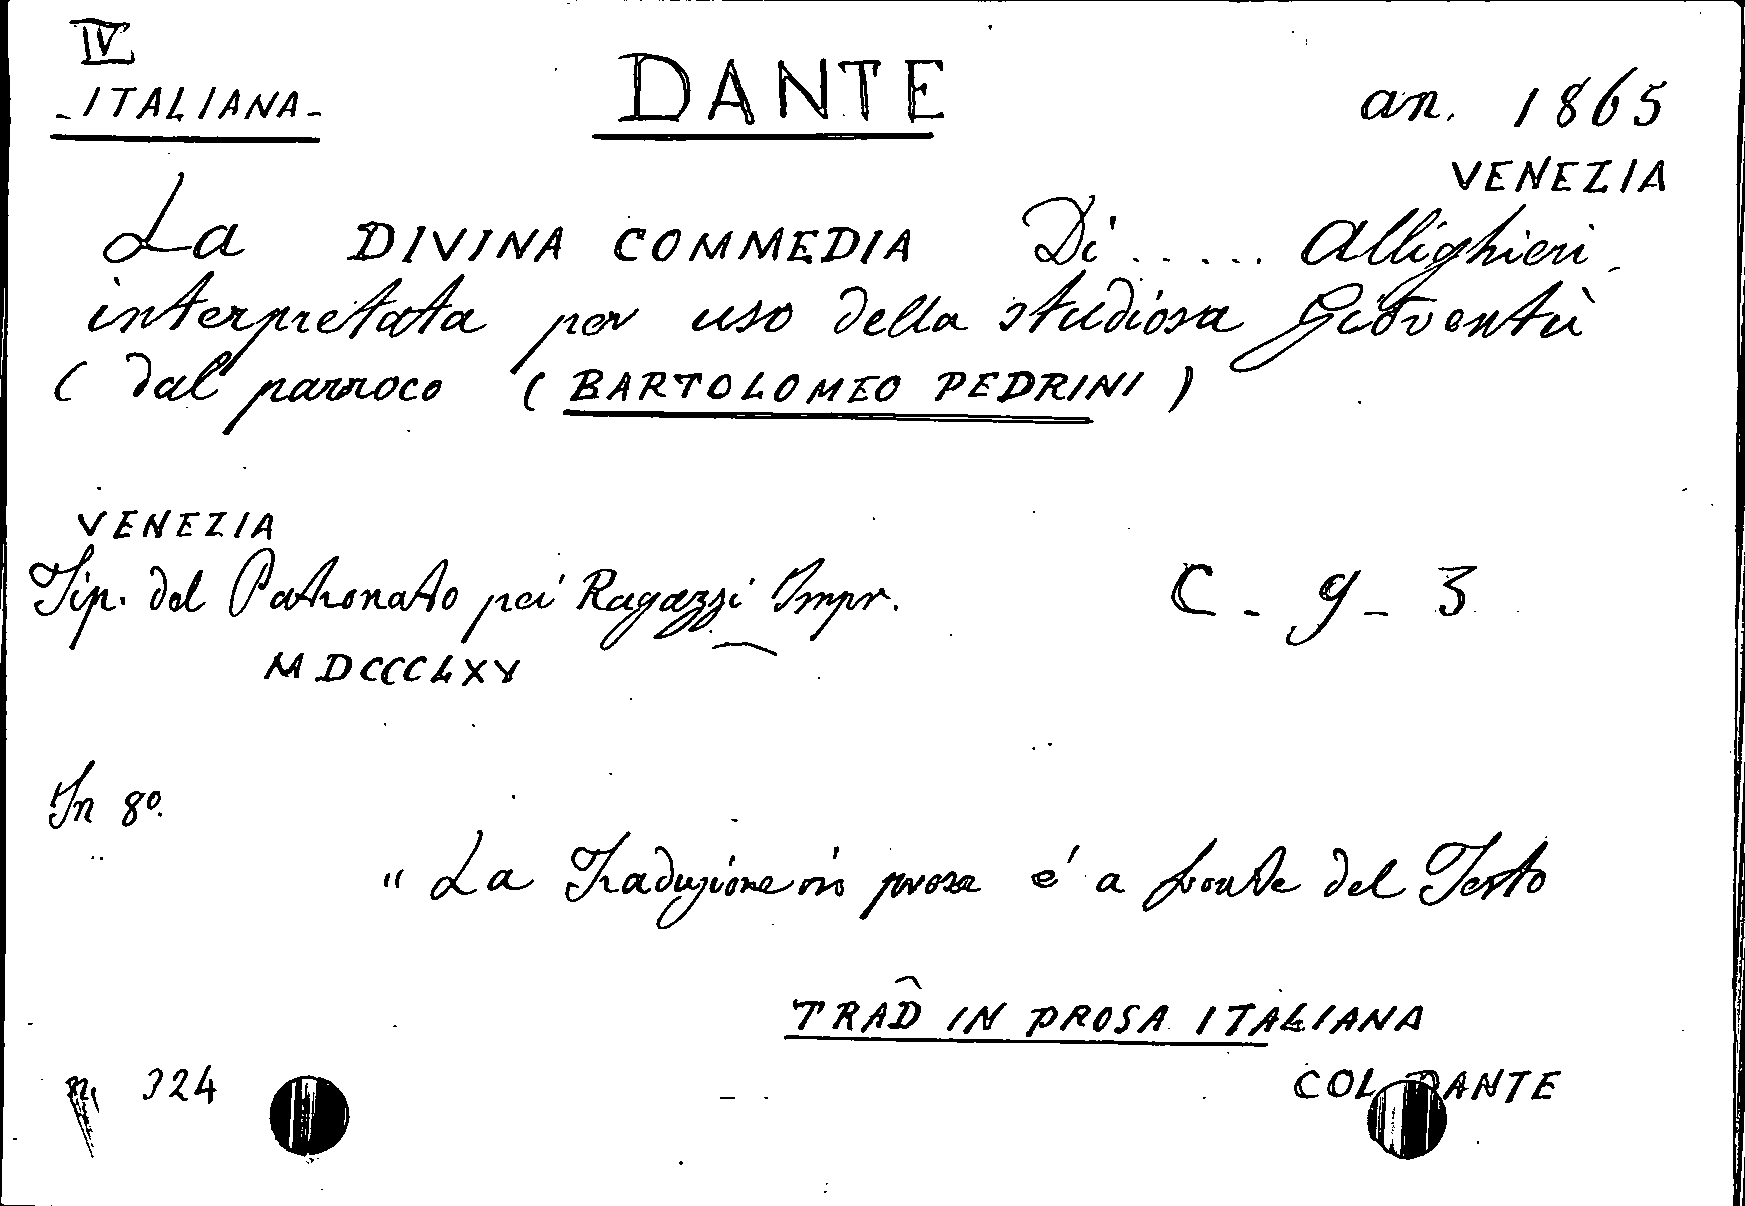 IV
- ITALIANA - DANTE an. 1865
VENEZIA
La DIVINA COMMEDIA Di ..... Allighieri
interpretata per uso della studiosa Gioventù
( dal parroco ( BARTOLOMEO PEDRINI )
VENEZIA
Tip. del Patronato pei Ragazzi Impr. C - 9 - 3
MDCCCLXV
In 8º.
" La Traduzione in prosa é a fronte del Testo
TRAD IN PROSA ITALIANA
324 COL DANTE